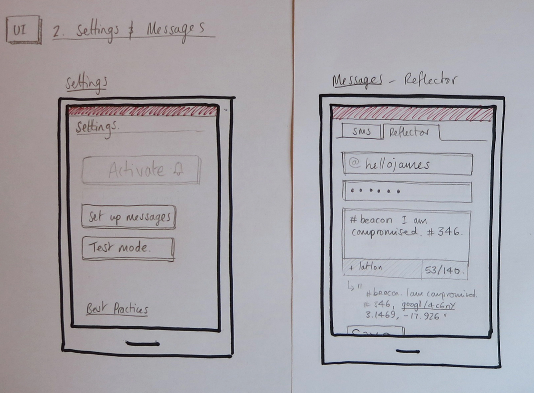 UI
2. Settings & Messages
Settings
Settings
Activate
Set up messages
Test mode.
Best Practices
Messages - Reflector
SMS
Reflector
@hellojames
# beacon I am
compromised. #346.
+ latlon
53/140.
#beacon I am compromised.